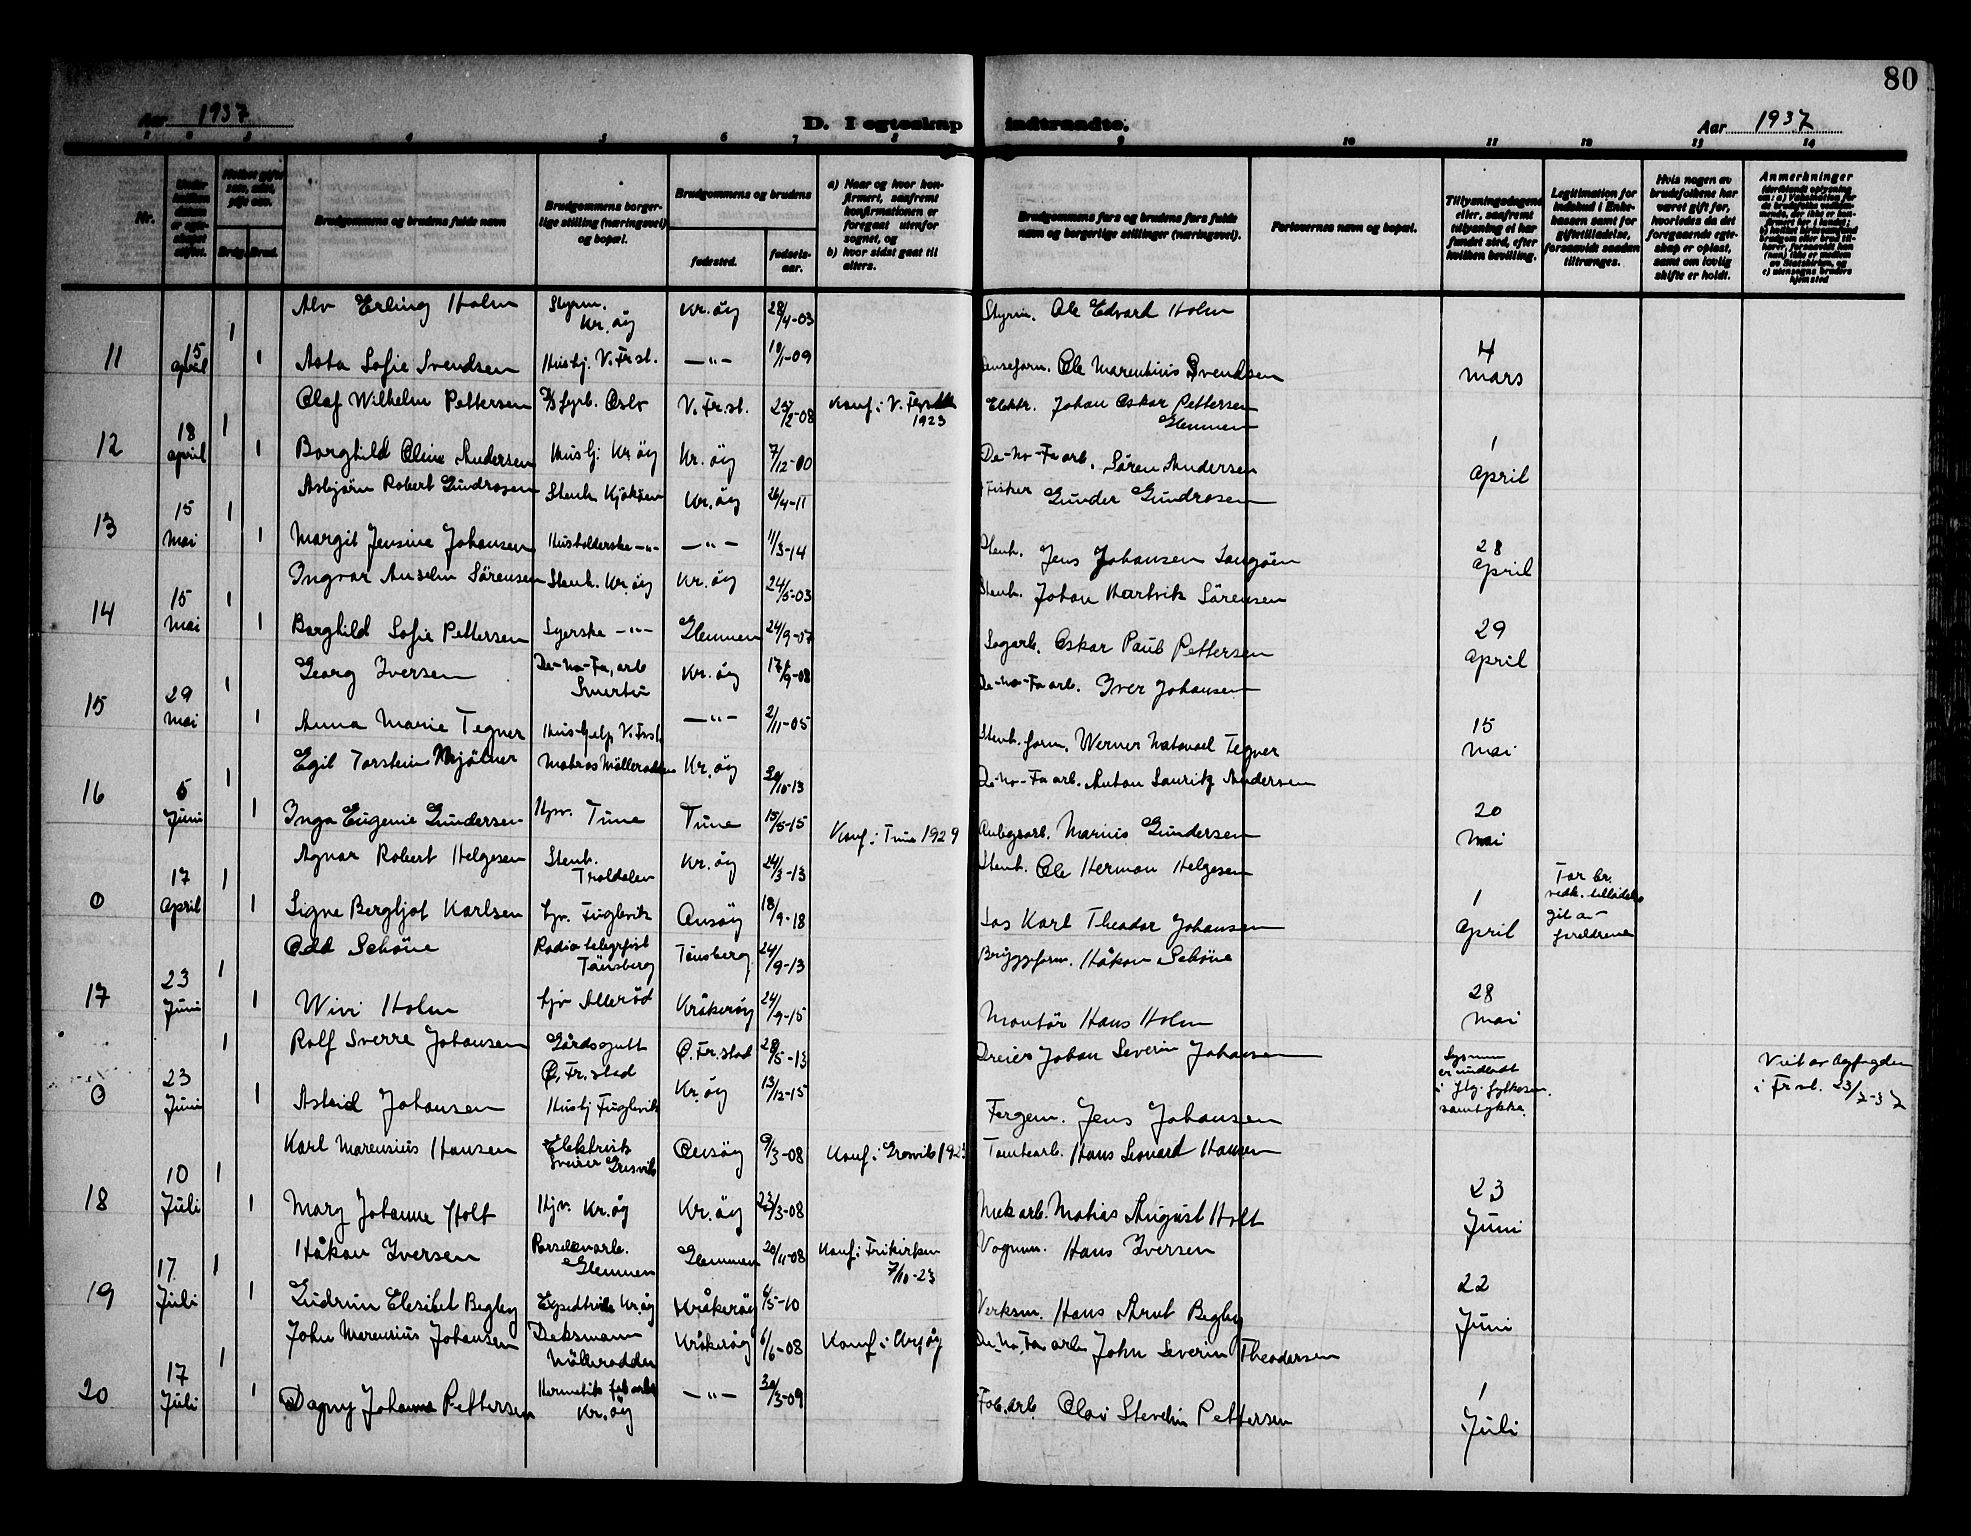 80
Aar 1937
D. I egteskap indtraadte.
Aar 1937
1 2 3 4 5 6 7 8 9 10 11 12 13 14
Nr.
Brudg. Brud.
Brudgommens og brudens fulde navn
Brudgommens borgerlige stilling (næringsvei) og bopæl.
Brudgommens og brudens
fødested.
fødselsaar.
a) Naar og hvor konfirmert, saafremt konfirmationen er foregaat utenfor sognet, og
b) hvor sidst gaat til alters.
Brudgommens fars og brudens fars fulde navn og borgerlige stillinger (næringsvei).
Forlovernes navn og bopæl.
Tillysningsdagene eller, saafremt tillysning ei har fundet sted, efter hvilken bevilling.
Legitimation for indskud i Enkekassen samt for giftetilladelse, forsaavidt saadan tiltrænges.
Hvis nogen av brudefolkene har været gift før, hvorledes da det foregaaende egteskap er opløst, samt om lovlig skifte er holdt.
Anmerkninger
Alv Erling Holm Styrm. Kr.øy Kr.øy 28/4-03 Styrm. Ole Edvard Holm
11 15 april 1 1 Asta Sofie Svendsen Hushj. V. Fr.st. —"— 10/1-09 Ole Marentius Svendsen 4 mars
Olaf Wilhelm Pettersen Oslo V. Fr.st. 25/2-08 Konf. i V. 1923 Elektr. Johan Oskar Pettersen Glemmen
12 18 april 1 1 Borghild Oline Andersen Hushj. Kr.øy Kr.øy 7/12-00 De-No-Fa arb. Søren Andersen 1 April
Asbjørn Robert Gundrosen Stenh. Kjøkøen Kr.øy 26/4-11 Fisker Gunder Gundrosen
13 15 mai 1 1 Margit Jensine Johansen Husholderske —"— —"— 11/3-14 Stenh. Jens Johansen Langøen 28 April
Ingvar Anselm Sørensen Stenh. Kr.øy Kr.øy 24/5-03 Stenh. Johan Hartvik Sørensen
14 15 mai 1 1 Borghild Sofie Pettersen Syerske —"— Glemmen 24/9-07 Sagarb. Oskar Paul Pettersen 29 April
Georg Iversen De-No-Fa, arb Smertu Kr.øy 17/9-08 De-No-Fa arb. Iver Johansen
15 29 mai 1 1 Anna Marie Tegner Hushjelp V. Fr.st. —"— 2/11-05 Stenh. form. Werner Natanael Tegner 15 mai
Egil Torstein Mjølner Matros Møllerodden Kr.øy 30/10-13 De-No-Fa arb. Anton Lauritz Andersen
16 6 Juni 1 1 Inga Eugenie Gundersen Hjv. Tune Tune 15/5-15 Konf. i Tune 1929 Anlegsarb. Marius Gundersen 20 mai
Agnar Robert Helgesen Stenh. Troldalen Kr.øy 24/3-13 Stenh. Ole Herman Helgesen
0 17 April 1 1 Signe Bergljot Karlsen hjv. Fuglevik Onsøy 18/9-18 Los Karl Theodor Johansen 1 April For br. vedk. tilladelse git av foreldrene
Odd Schöne Radiotelegrfist Tønsberg Tønsberg 24/9-13 Bryggeform. Håkon Schöne
17 23 Juni 1 1 Wivi Holm hjv Allerød Kråkerøy 24/9-15 Montør Hans Holm 28 mai
Rolf Sverre Johansen Gårdsgutt Ø. Fr.stad Ø. Fr.stad 28/5-13 Dreier Johan Severin Johansen
0 23 Juni 1 1 Astrid Johansen Hushj Fuglevik Kr.øy 13/12-15 Fergem. Jens Johansen Lysnin er undladt i flg. fylkesm. samtykke. Viet av byfogden i Fr.st. 23/7-37
Karl Marensius Hansen Elektrisk sveiser Gresvik Onsøy 9/3-08 Konf. i Gresvik 1923 Tomtearb. Hans Leonard Hansen
18 10 Juli 1 1 Mary Johanne Holt Hjv. Kr.øy Kr.øy 23/3-08 Mek arb. Mathias August Holt 23 Juni
Håkon Iversen Porselenarb. Glemmen Glemmen 20/11-08 Konf. i Frikirken 7/10-23 Vognm. Hans Iversen
19 17 Juli 1 1 Gudrun Elesibet Begby Kr.øy Kråkerøy 6/5-10 Verksm. Hans Arnt Begby 22 Juni
John Marensius Johansen Deksmann Møllerodden Kråkerøy 6/6-08 Konf. i Kr.øy De-No-Fa arb John Severin Theodorsen
20 17 Juli 1 1 Dagny Johanne Pettersen Hermetikfab arb. Kr.øy —"— 30/3-09 Fab. arb. Olai Stevelin Pettersen 1 Juli